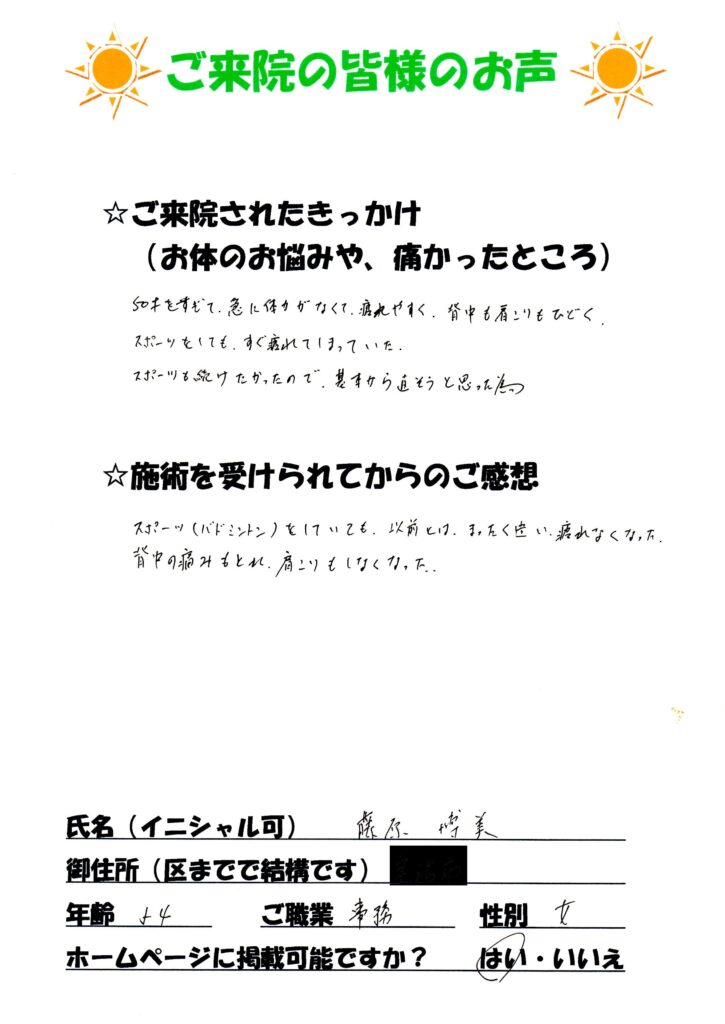 ご来院の皆様のお声
☆ご来院されたきっかけ
（お体のお悩みや、痛かったところ）
50才をすぎて、急に体力がなくて、疲れやすく、背中も肩こりもひどく、
スポーツをしても、すぐ疲れてしまっていた。
スポーツも続けたかったので、基本から直そうと思った為。
☆施術を受けられてからのご感想
スポーツ（バドミントン）をしていても、以前とは、まったく違い、疲れなくなった。
背中の痛みもとれ、肩こりもしなくなった。
氏名（イニシャル可） 藤原 博美
御住所（区までで結構です）
年齢 54 ご職業 事務 性別 女
ホームページに掲載可能ですか？ はい・いいえ